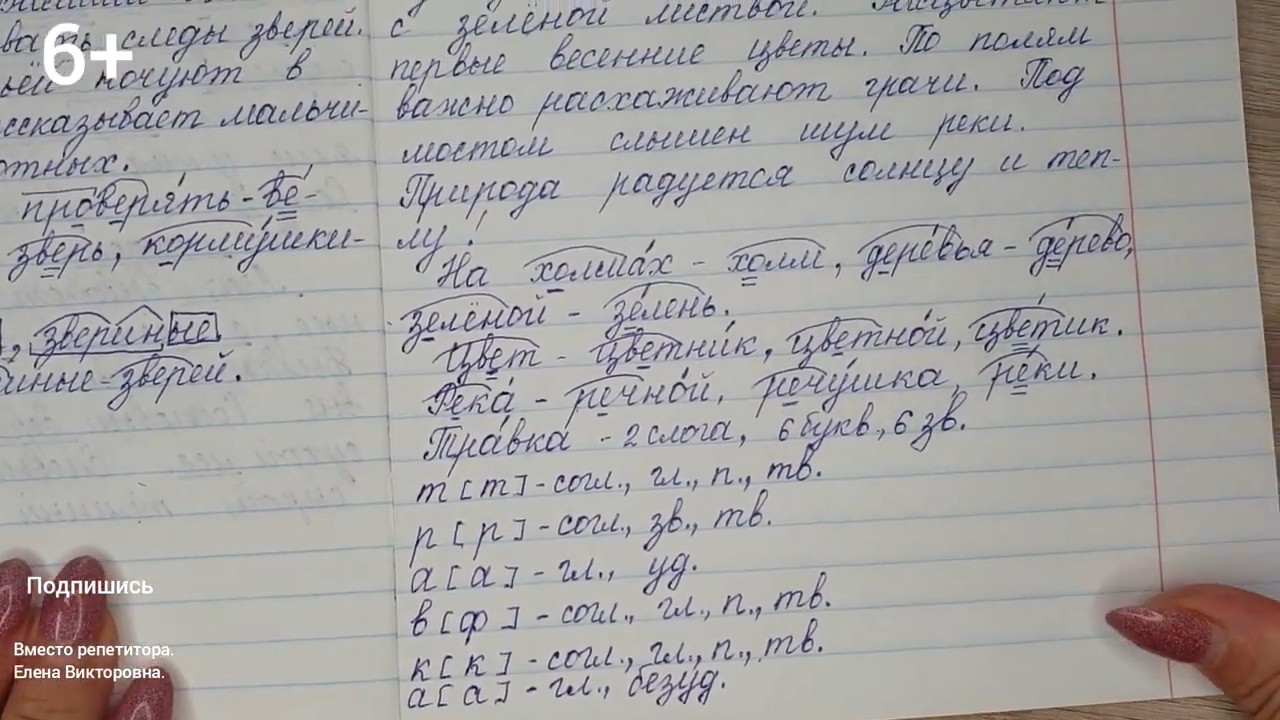 6+
вать следы зверей.
ночуют в
ссказывает мальчи-
отных.
проверять - ве-
зверь, кормушки-
, звериные
иные - зверей.
с зелёной листвой.
первые весенние цветы. По полям
важно расхаживают грачи. Под
мостом слышен шум реки.
Природа радуется солнцу и теп-
лу!
На холмах - холм, деревья - дерево,
зелёной - зелень.
Цвет - цветник, цветной, цветик.
Река - речной, речушка, реки.
Травка - 2 слога, 6 букв, 6 зв.
т [т] - согл., гл., п., тв.
р [р] - согл., зв., тв.
а [а] - гл., уд.
в [ф] - согл., гл., п., тв.
к [к] - согл., гл., п., тв.
а [а] - гл., безуд.
Подпишись
Вместо репетитора.
Елена Викторовна.